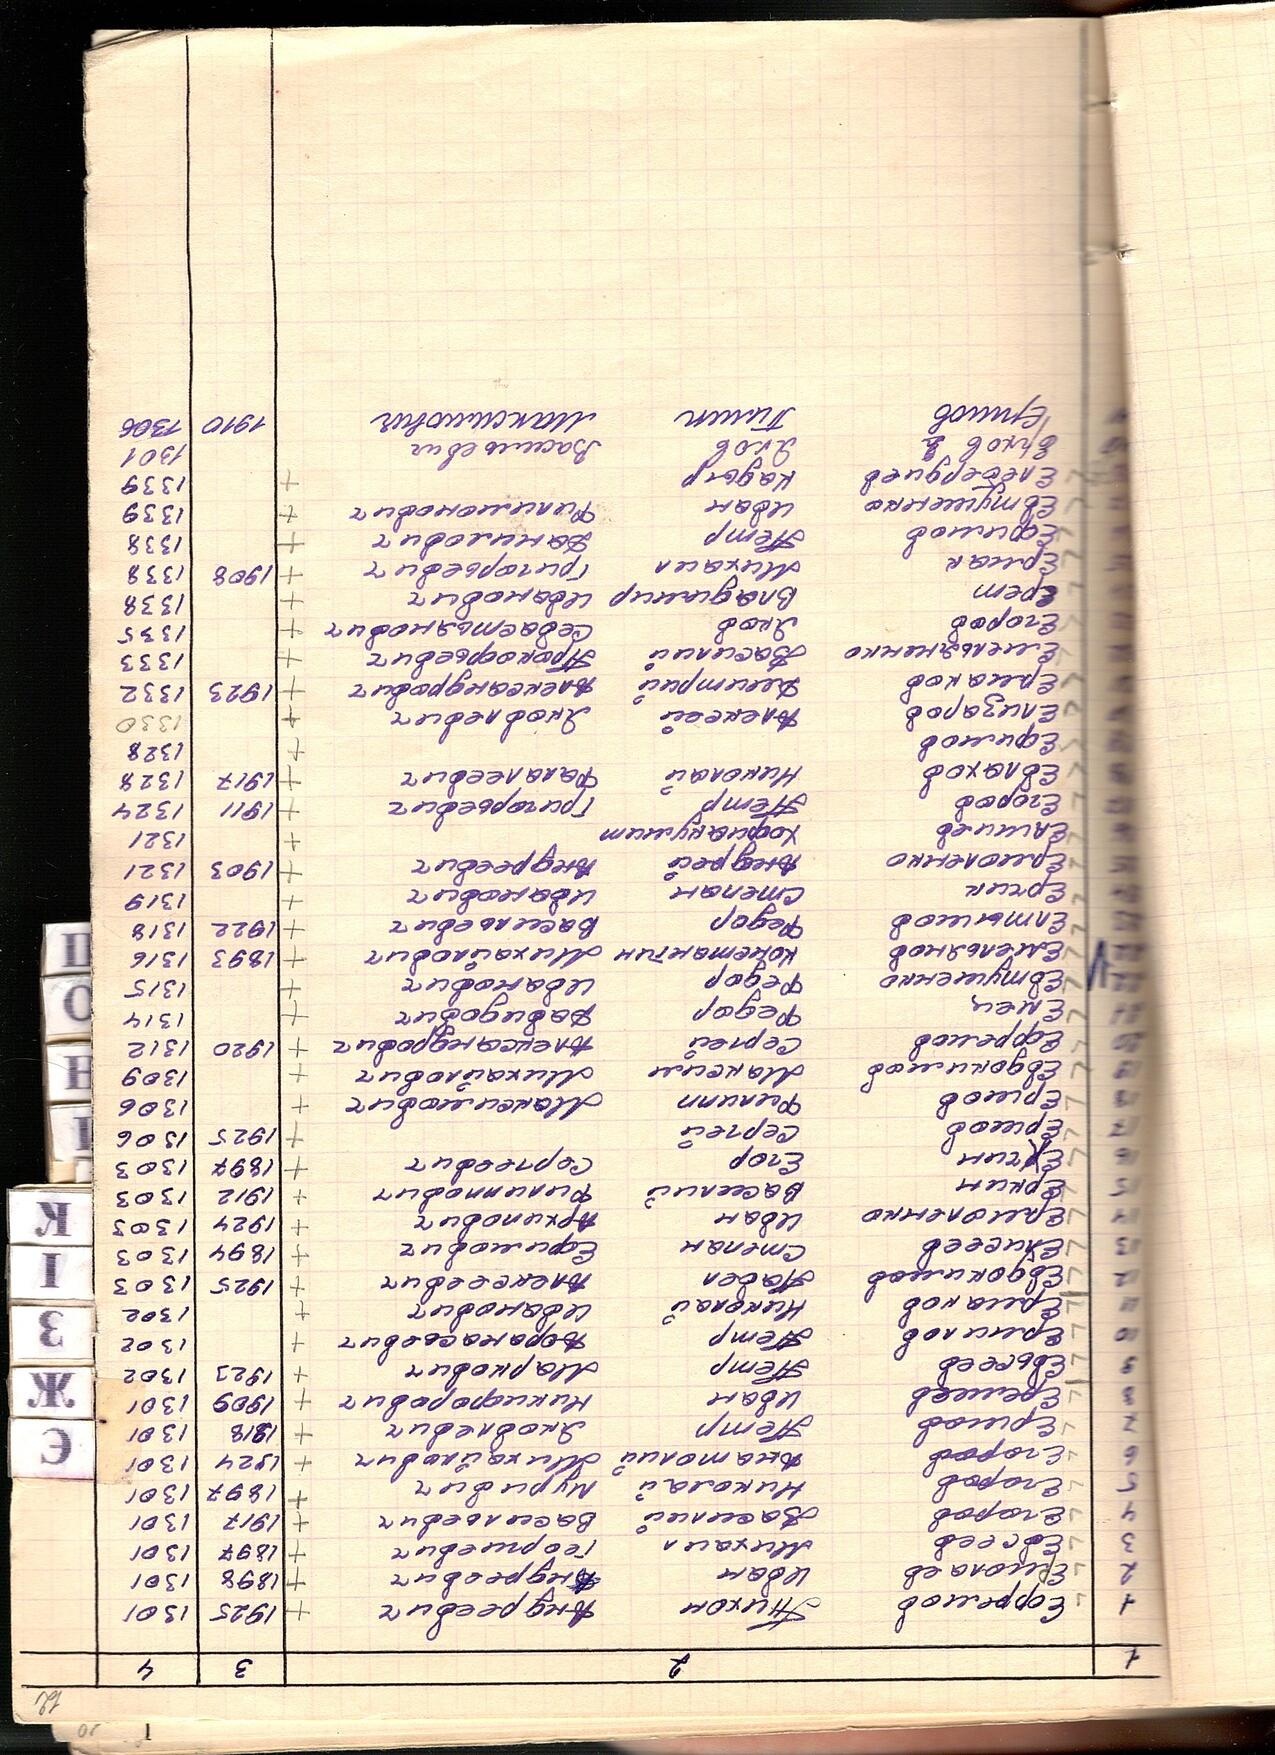 12
1 2 3 4
1 Ефремов Тихон Андреевич + 1925 1301
2 Ермолаев Иван Андреевич + 1898 1301
3 Евсеев Михаил Георгиевич + 1897 1301
4 Егоров Василий Васильевич + 1917 1301
5 Егоров Николай + 1897 1301
6 Егоров Анатолий Михайлович + 1924 1301
7 Ершов Петр Яковлевич + 1918 1301
8 Еремеев Иван Никифорович 1909 1301
9 Евсеев Петр Маркович + 1923 1302
10 Ермилов Петр Афанасьевич + 1302
11 Ермаков Николай Иванович + 1302
12 Евдокимов Павел Алексеевич + 1925 1303
13 Елисеев Степан Ефимович + 1894 1303
14 Ермоленко Иван Архипович + 1924 1303
15 Еркин Василий Филиппович + 1912 1303
16 Егор Сергеевич + 1897 1303
17 Ершов Сергей + 1925 1306
18 Ершов Филипп Максимович + 1306
19 Евдокимов Максим Михайлович + 1309
20 Ефремов Сергей Александрович + 1920 1312
21 Емец Федор Давидович + 1314
22 Евтушенко Федор Иванович + 1315
Емельянов Константин Михайлович + 1893 1316
Елтышов Федор Васильевич + 1922 1318
Степан Иванович + 1319
Ермоленко Андрей Андреевич + 1903 1321
+ 1321
Егоров Петр Григорьевич + 1911 1324
Евлахов Николай Фалалеевич + 1917 1328
Ефимов + 1328
Елизаров Алексей Яковлевич + 1330
Ермаков Дмитрий Александрович + 1923 1332
Емельяненко Василий Прокофьевич + 1333
Егоров Яков Севастьянович + 1335
Ерет Владимир Иванович + 1338
Ермак Михаил Григорьевич + 1908 1338
Ефимов Петр Данилович + 1338
Евтушенко Иван Филимонович + 1339
Елебердиев Кадыр + 1339
Яков Васильевич 1301
Ершов Пимен Максимович 1910 1306
Є
Ж
З
І
К
Н
О
П